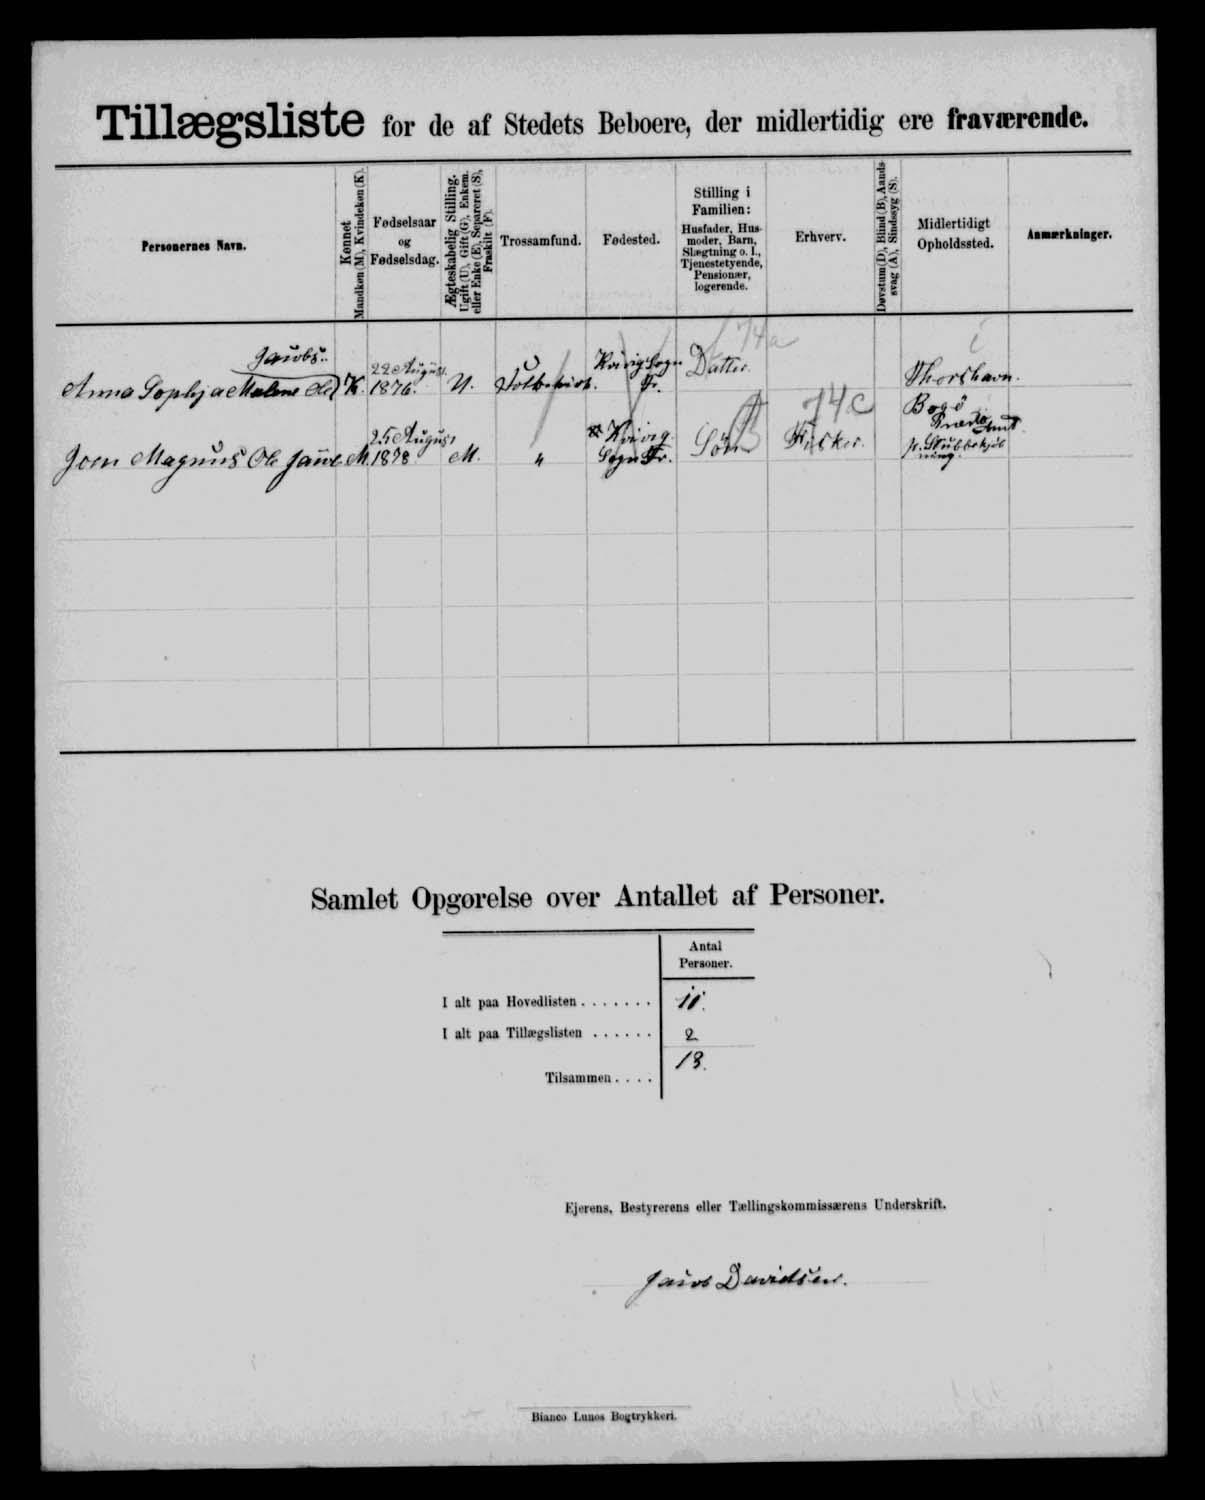 Tillægsliste for de af Stedets Beboere, der midlertidig ere fraværende.
Personernes Navn.
Kønnet
Mandkøn (M), Kvindekøn (K).
Fødselsaar
og
Fødselsdag.
Ægteskabelig Stilling.
Ugift (U), Gift (G), Enkem.
eller Enke (E), Separeret (S),
Fraskilt (F).
Trossamfund.
Fødested.
Stilling i
Familien:
Husfader, Hus-
moder, Barn,
Slægtning o. l.,
Tjenestetyende,
Pensionær,
logerende.
Erhverv.
Døvstum (D), Blind (B), Aands-
svag (A), Sindssyg (S).
Midlertidigt
Opholdssted.
Anmærkninger.
74a
Anna Sophja Malene
K.
22 August
1876.
U.
Kvivig Sogn
Fr.
Datter.
Thorshavn.
74c
Joen Magnus Ole
M.
25 August
1878
M.
"
Kvivig
Sogn Fr.
Søn
Fisker.
Bogø
Præstø Amt
p. Stubbekjøb
ning.
Samlet Opgørelse over Antallet af Personer.
Antal
Personer.
I alt paa Hovedlisten . . . . . . . 11.
I alt paa Tillægslisten . . . . . . 2
Tilsammen . . . . 13.
Ejerens, Bestyrerens eller Tællingskommissærens Underskrift.
Davidsen.
Bianco Lunos Bogtrykkeri.